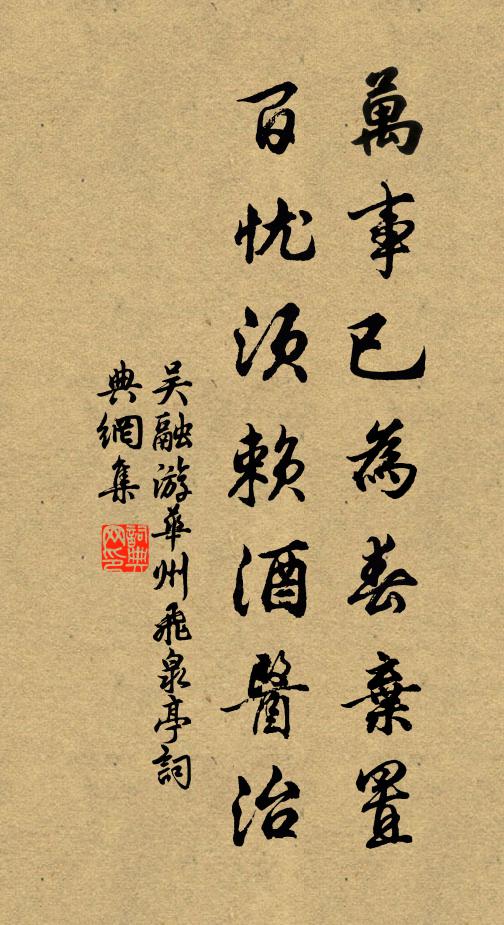 萬事已為春棄置
百忧須賴酒醫治
吴融游華州飛泉亭詞
典網集
詞典網印